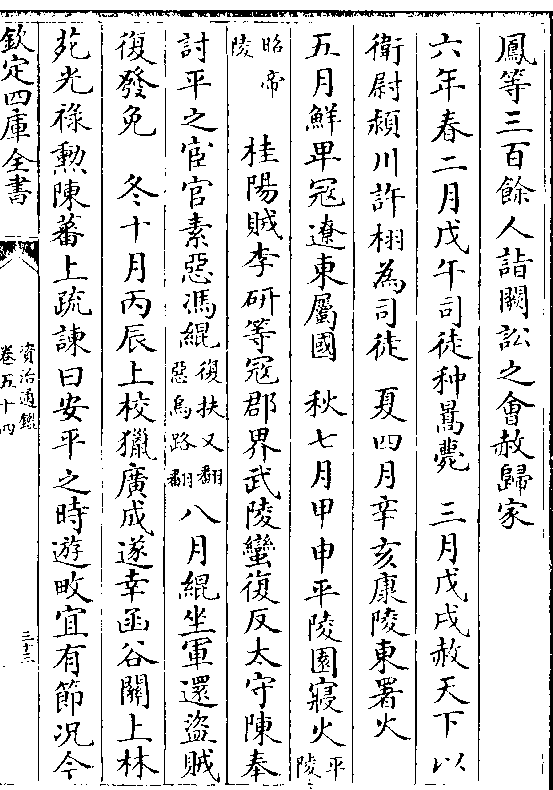 鳳等三百餘人詣闕訟之會赦歸家
六年春二月戊午司徒种暠薨　三月戊戌赦天下以
衛尉潁川許栩為司徒　夏四月辛亥康陵東署火
五月鮮卑寇遼東屬國　秋七月甲申平陵園寢火平陵
昭帝陵　桂陽賊李研等寇郡界武陵蠻復反太守陳奉
討平之宦官素惡馮緄復扶又翻惡烏路翻八月緄坐軍還盜賊
復發免　冬十月丙辰上校獵廣成遂幸函谷關上林
苑光祿勲陳蕃上疏諫曰安平之時遊畋宜有節况今
欽定四庫全書
資治通鑑
卷五十四
三十三